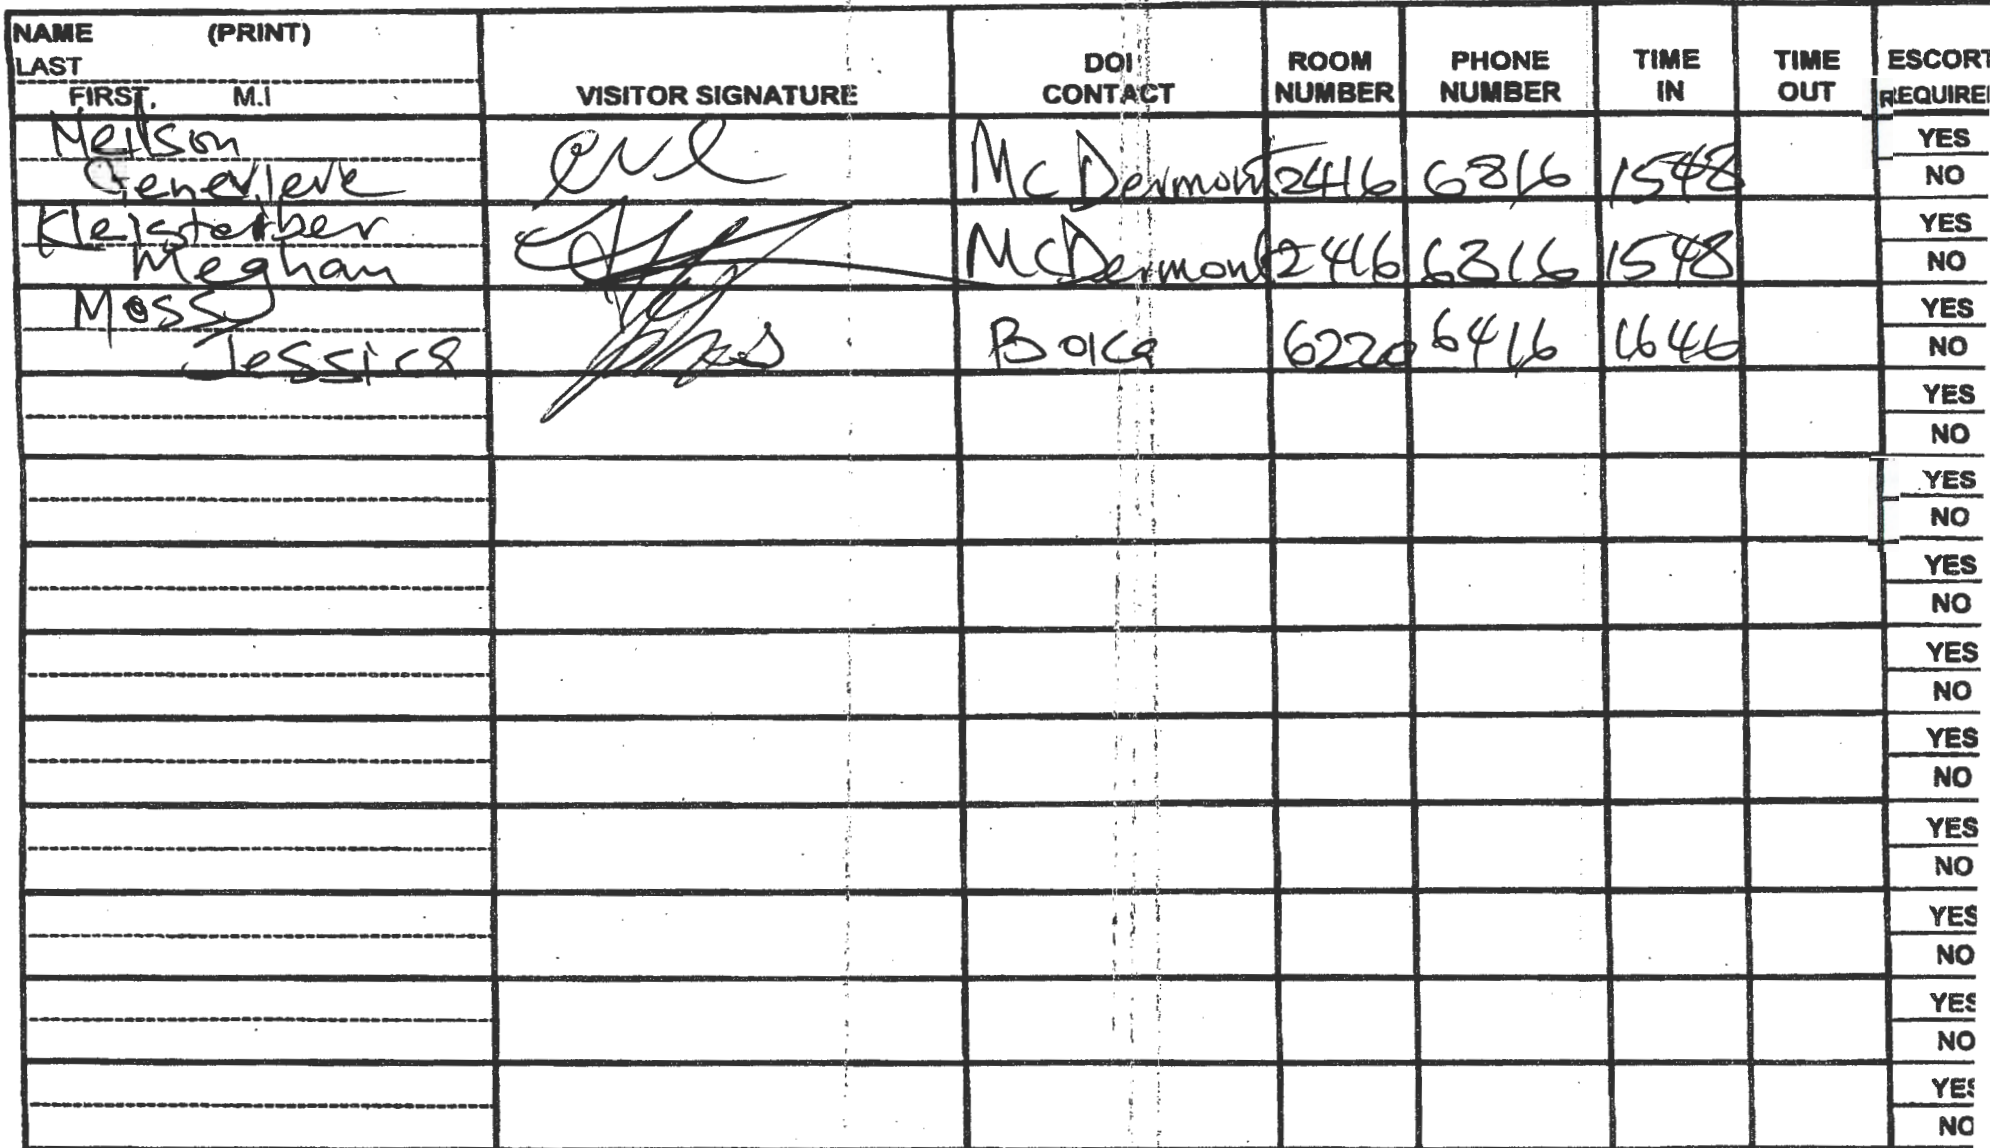 NAME (PRINT)
LAST
FIRST, M.I
VISITOR SIGNATURE
DOI CONTACT
ROOM NUMBER
PHONE NUMBER
TIME IN
TIME OUT
ESCORT REQUIRE
Neilson
Genevieve McDermont 2416 6816 1548
YES
NO
Kleisterber
Meghan McDermont 2416 6816 1548
YES
NO
Moss
Jessica 6220 6416 1646
YES
NO
YES
NO
YES
NO
YES
NO
YES
NO
YES
NO
YES
NO
YES
NO
YES
NO
YES
NO